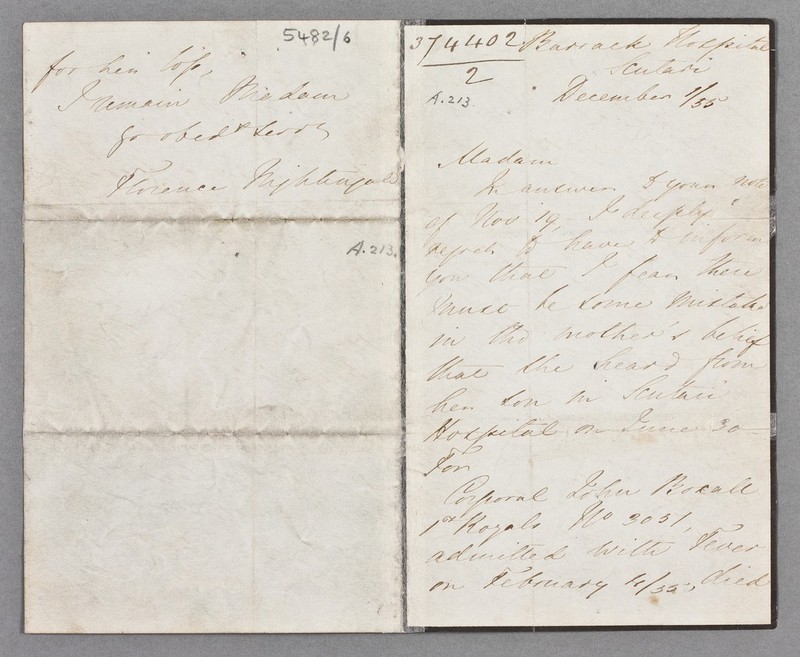 5482/6
for her loss,
I remain Madam
yr obedt servt
Florence Nightingale
A.213.
374402
2
A.213.
Barrack Hospital
Scutari
December 1/55
Madam
In answer to your note
of Nov 19, I deeply
regret to have to inform
you that I fear there
must be some mistake
in the mother's belief
that she heard from
her son in Scutari
Hospital on June 30 -
For
Corporal John Boxall
1st Royals No 3051,
admitted with Fever
on February 4/55, died